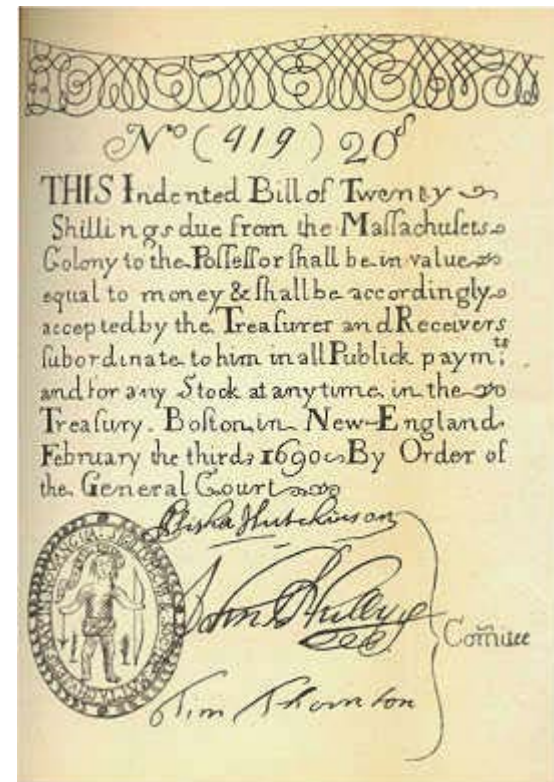 No (919) 20s
THIS Indented Bill of Twenty
Shillings due from the Maſſachuſets
Colony to the Poſſeſſor ſhall be in value
equal to money & ſhall be accordingly
accepted by the Treaſurer and Receivers
ſubordinate to him in all Publick paymts:
and for any Stock at any time in the
Treaſury. Boſton in New-England
February the third 1690 By Order of
the General Court
Elisha Hutchinson
John
Comittee
Tim Thornton